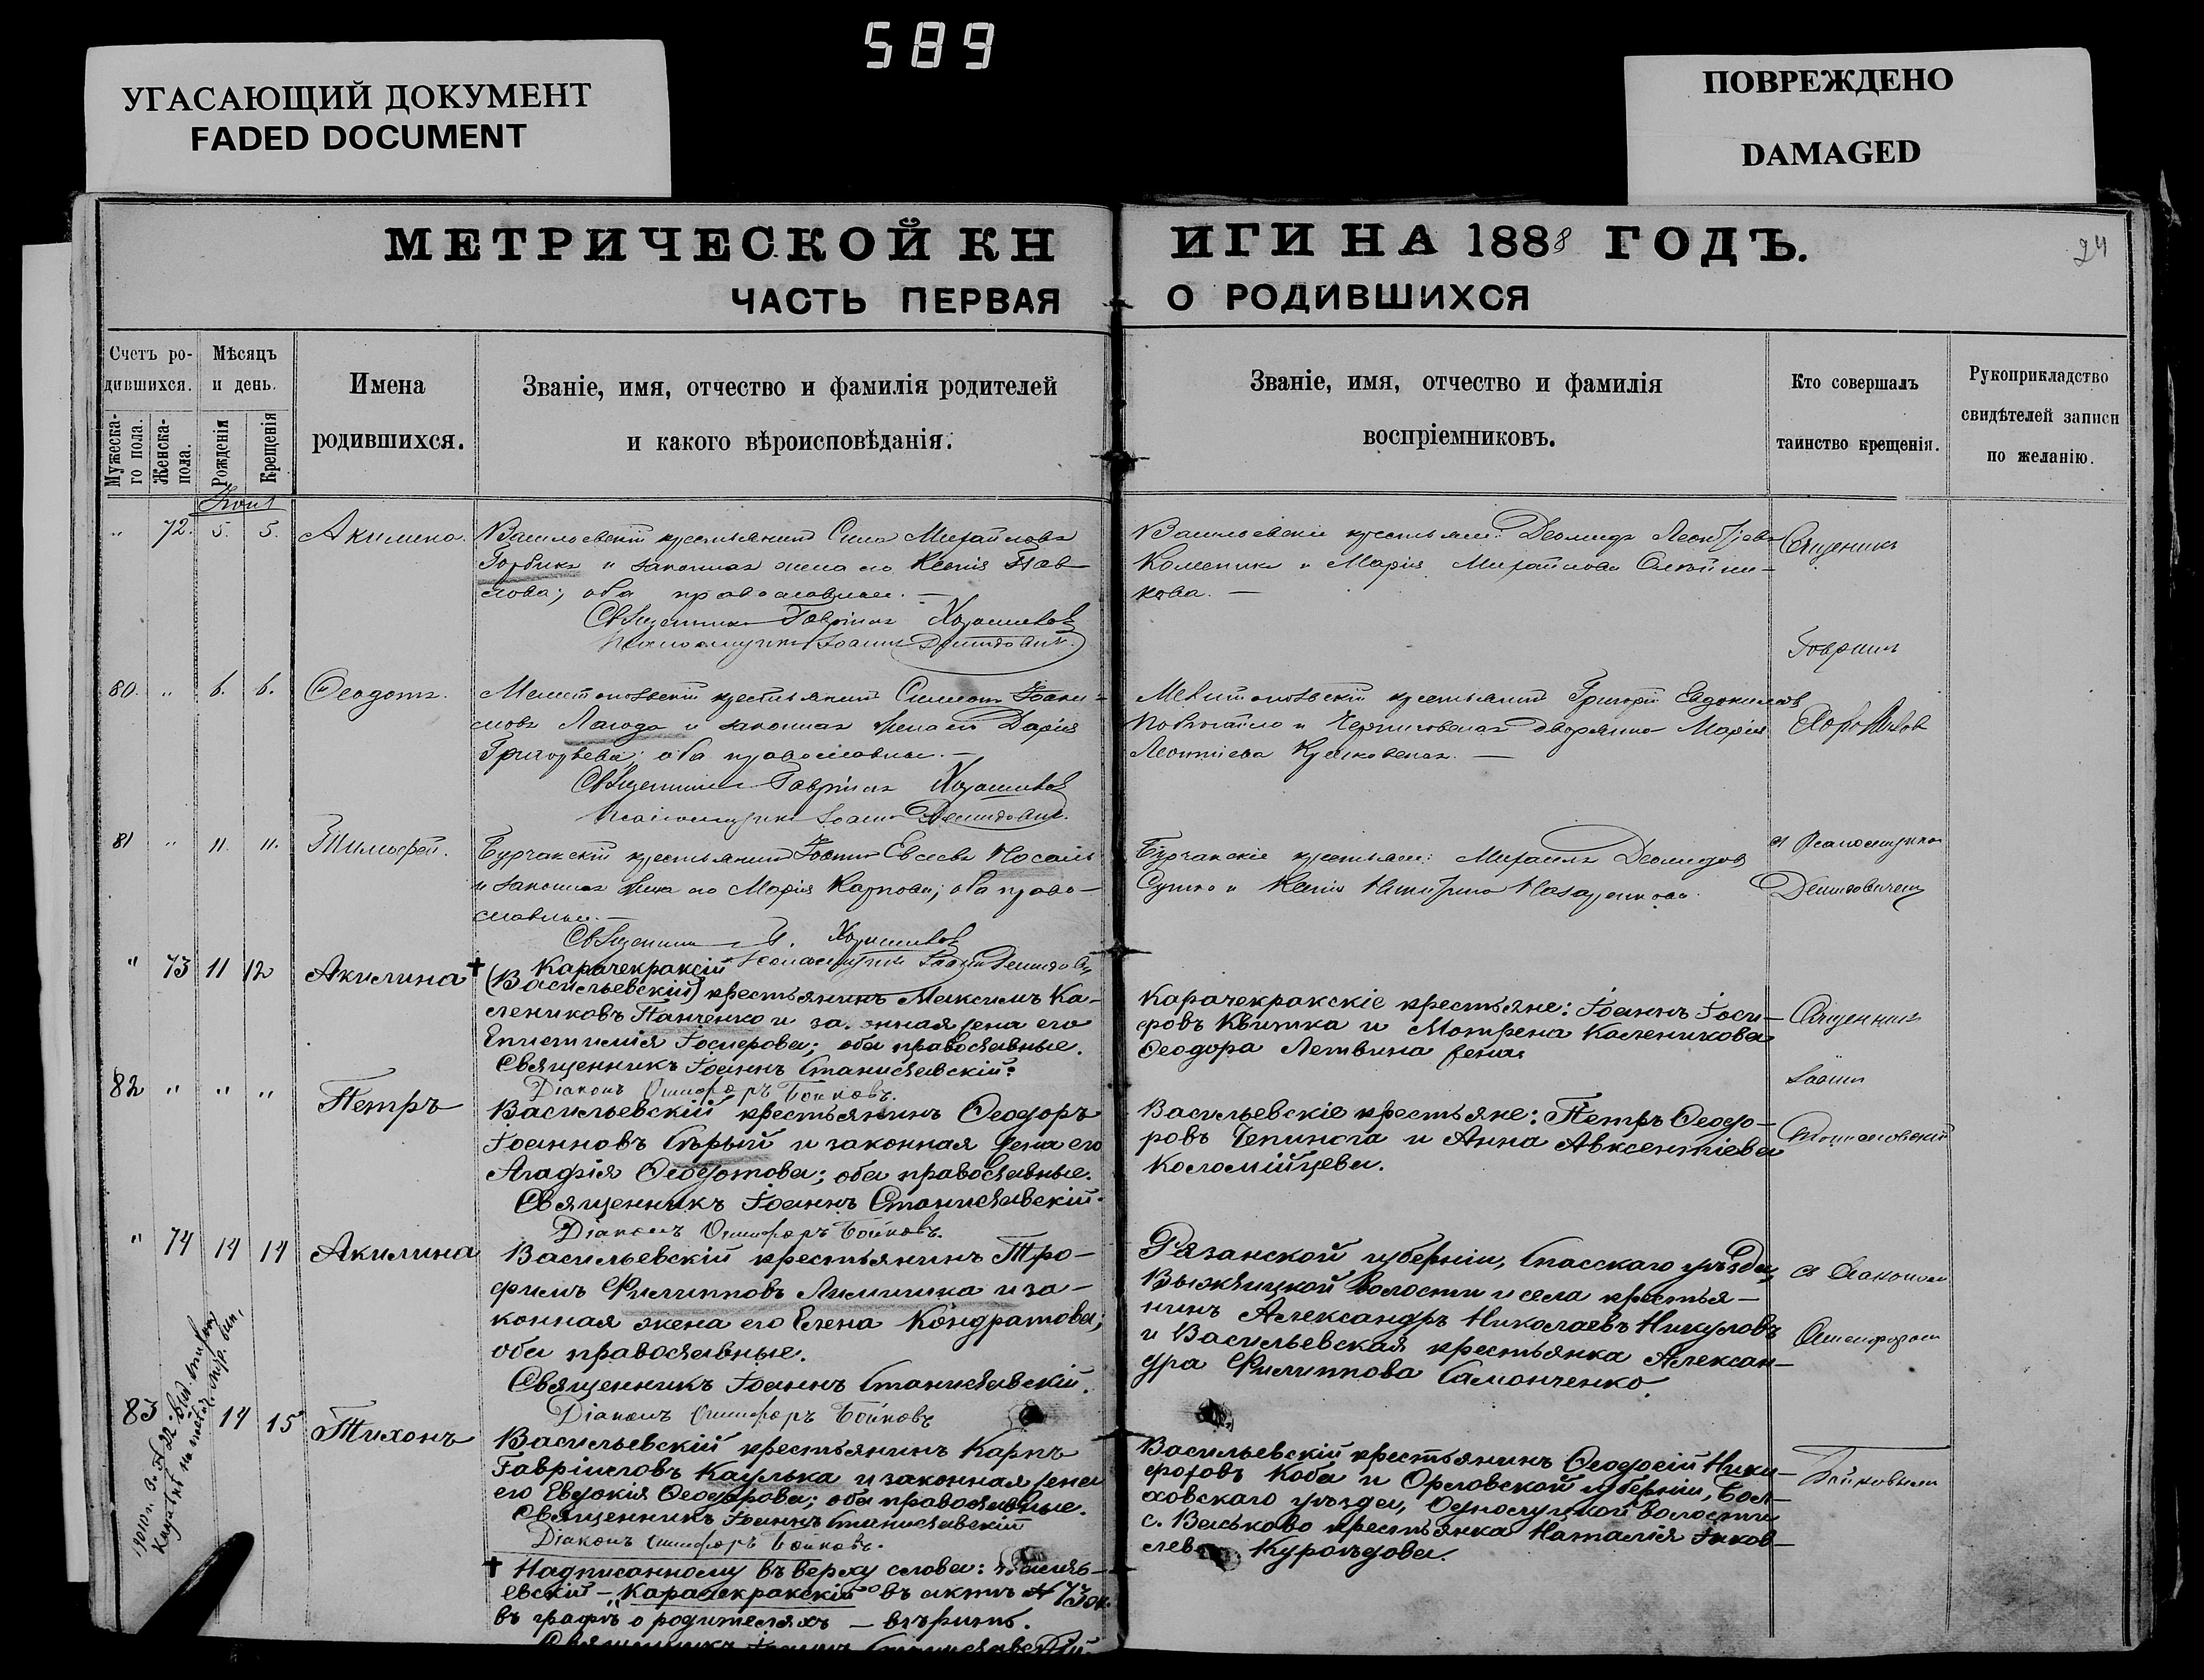 589
УГАСАЮЩИЙ ДОКУМЕНТ
FADED DOCUMENT
ПОВРЕЖДЕНО
DAMAGED
МЕТРИЧЕСКОЙ КНИГИ НА 1888 ГОДЪ.
24
ЧАСТЬ ПЕРВАЯ О РОДИВШИХСЯ
Счетъ ро-
дившихся.
Мужеска-
го пола.
Женска-
пола.
Мѣсяцъ
и день.
Рожденія
Крещенія
Имена
родившихся.
Званіе, имя, отчество и фамилія родителей
и какого вѣроисповѣданія.
Званіе, имя, отчество и фамилія
воспріемниковъ.
Кто совершалъ
таинство крещенія.
Рукоприкладство
свидѣтелей записи
по желанію.
" 72. 5. 5. Акилина.
Васильевскій крестьянинъ Сила Михайловъ
Горбикъ и законная жена его Ксенія Пав-
лова; оба православные. —
Священникъ Гавріилъ
Псаломщикъ Іоаннъ Демидовичъ.
Васильевскіе крестьяне: Деомидъ Леонтіевъ
и Марія Михайлова
кова. —
Священникъ
Гавріилъ
80. " 6. 6. Ѳеодотъ.
крестьянинъ Симеонъ
Лагода и законная жена его Дарія
Григорьева; оба православные. —
Священникъ Гавріилъ
Псаломщикъ Іоаннъ Демидовичъ.
крестьянинъ Григорій Евдокимовъ
и Черниговская дворянка Марія
Леонтіева —
81 " 11. 11. Тимофей.
Бурчакскій крестьянинъ Іоаннъ Евсеевъ Носаль
и законная жена его Марія Карпова; оба право-
славные. —
Священникъ Г.
Псаломщикъ Іоаннъ Демидовичъ
Бурчакскіе крестьяне: Михаилъ Деомидовъ
Сушко и Ксенія Назаренкова.
съ Псаломщикомъ
Демидовичемъ
" 73 11 12 Акилина
† Карачекракскій
(Васильевскій) крестьянинъ Максимъ Ка-
лениковъ Панченко и законная жена его
Епистимія Іосифова; оба православные.
Священникъ Іоаннъ Станиславскій.
Діаконъ Онисифоръ Бойковъ.
Карачекракскіе крестьяне: Іоаннъ Іоси-
фовъ Квитка и Мотрена Каленикова
Ѳеодора Летвина жена.
Священникъ
Іоаннъ
Станиславскій
82 " " " Петръ
Васильевскій крестьянинъ Ѳеодоръ
Іоанновъ Сѣрый и законная жена его
Агафія Ѳеодотова; оба православные.
Священникъ Іоаннъ Станиславскій.
Діаконъ Онисифоръ Бойковъ.
Васильевскіе крестьяне: Петръ Ѳеодо-
ровъ Чепинога и Анна Авксентіева
Коломійцева.
" 74 14 14 Акилина
Васильевскій крестьянинъ Тро-
фимъ Филипповъ и за-
конная жена его Елена Кондратова;
оба православные.
Священникъ Іоаннъ Станиславскій.
Діаконъ Онисифоръ Бойковъ
Рязанской губерніи, Спасскаго уѣзда,
волости и села крестья-
нинъ Александръ Николаевъ Никуловъ
и Васильевская крестьянка Алексан-
дра Филиппова Самонченко.
съ Діакономъ
Онисифоромъ
83 14 15 Тихонъ
Васильевскій крестьянинъ Карпъ
Гавріиловъ Каулька и законная жена
его Евдокія Ѳеодорова; оба православные.
Священникъ Іоаннъ Станиславскій
Діаконъ Онисифоръ Бойковъ.
Васильевскій крестьянинъ Ѳеодосій Ники-
форовъ Коба и Орловской губерніи, Бол-
ховскаго уѣзда, волости
с. крестьянка Наталія Іаков-
лева Куроѣдова.
Бойковымъ
† Надписанному въ верху слова:
евскій — "Карачекракскій" въ актѣ № 73 ж.
въ графѣ о родителяхъ — вѣрить.
Священникъ Іоаннъ Станиславскій